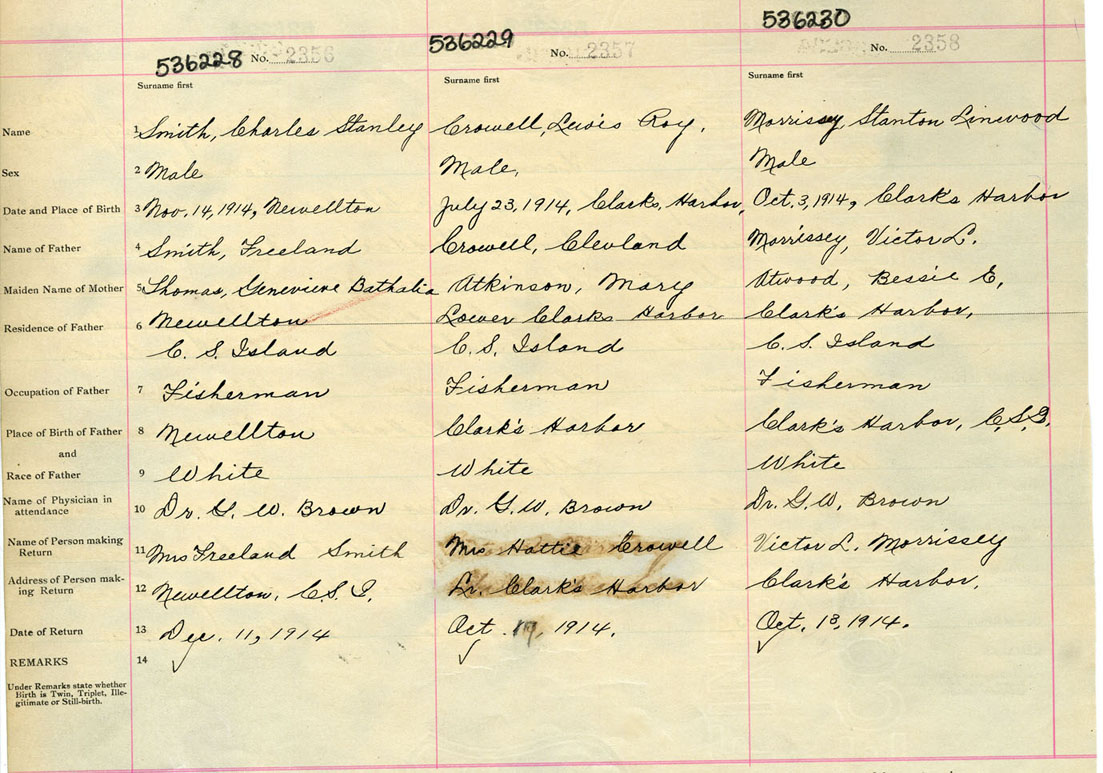 536228 No. 2356 536229 No. 2357 536230 No. 2358
Surname first Surname first Surname first
Name 1 Smith, Charles Stanley Crowell, Lewis Roy, Morrissey, Stanton Linwood
Sex 2 Male Male, Male
Date and Place of Birth 3 Nov. 14, 1914, Newellton July 23, 1914, Clarks, Harbor, Oct. 3, 1914, Clark's Harbor
Name of Father 4 Smith, Freeland Crowell, Clevland Morrissey, Victor L.
Maiden Name of Mother 5 Thomas, Genevieve Bathalia Atkinson, Mary Atwood, Bessie E,
Residence of Father 6 Newellton Lower Clarks Harbor Clark's Harbor,
C. S. Island C. S. Island C. S. Island
Occupation of Father 7 Fisherman Fisherman Fisherman
Place of Birth of Father 8 Newellton Clark's Harbor Clark's Harbor, C.S.I.
and
Race of Father 9 White White White
Name of Physician in
attendance 10 Dr. G. W. Brown Dr. G. W. Brown Dr. G. W. Brown
Name of Person making
Return 11 Mrs Freeland Smith Mrs Hattie Crowell Victor L. Morrissey
Address of Person mak-
ing Return 12 Newellton, C.S.I. Lr. Clark's Harbor Clark's Harbor,
Date of Return 13 Dec. 11, 1914 Oct. 1914. Oct. 13, 1914.
REMARKS 14
Under Remarks state whether
Birth is Twin, Triplet, Ille-
gitimate or Still-birth.